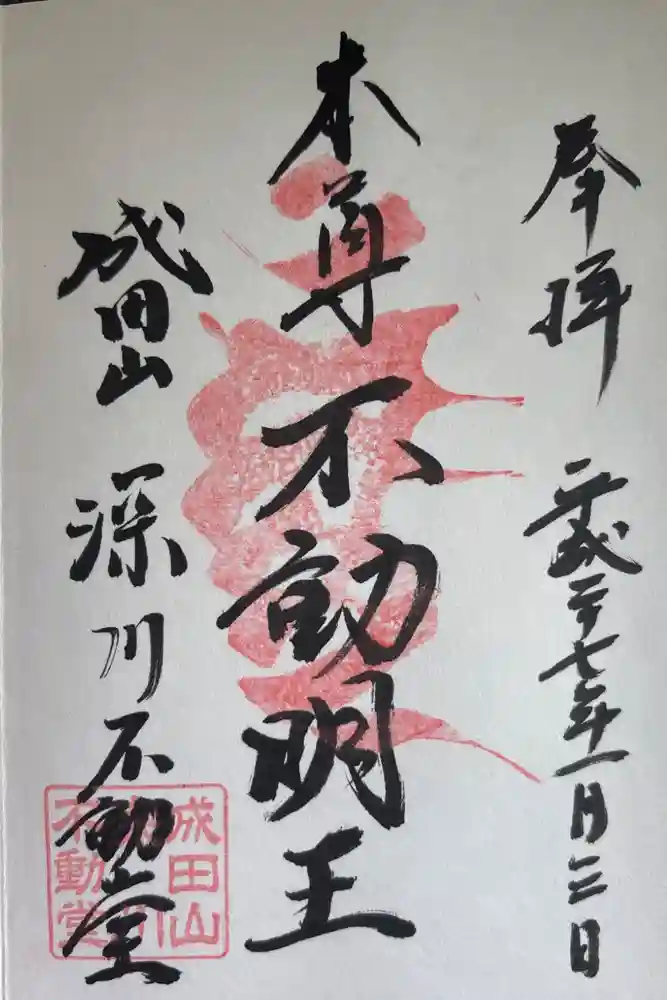 奉拝 平成二十七年一月三日
本尊 不動明王
成田山 深川不動堂
成田山
深川
不動堂